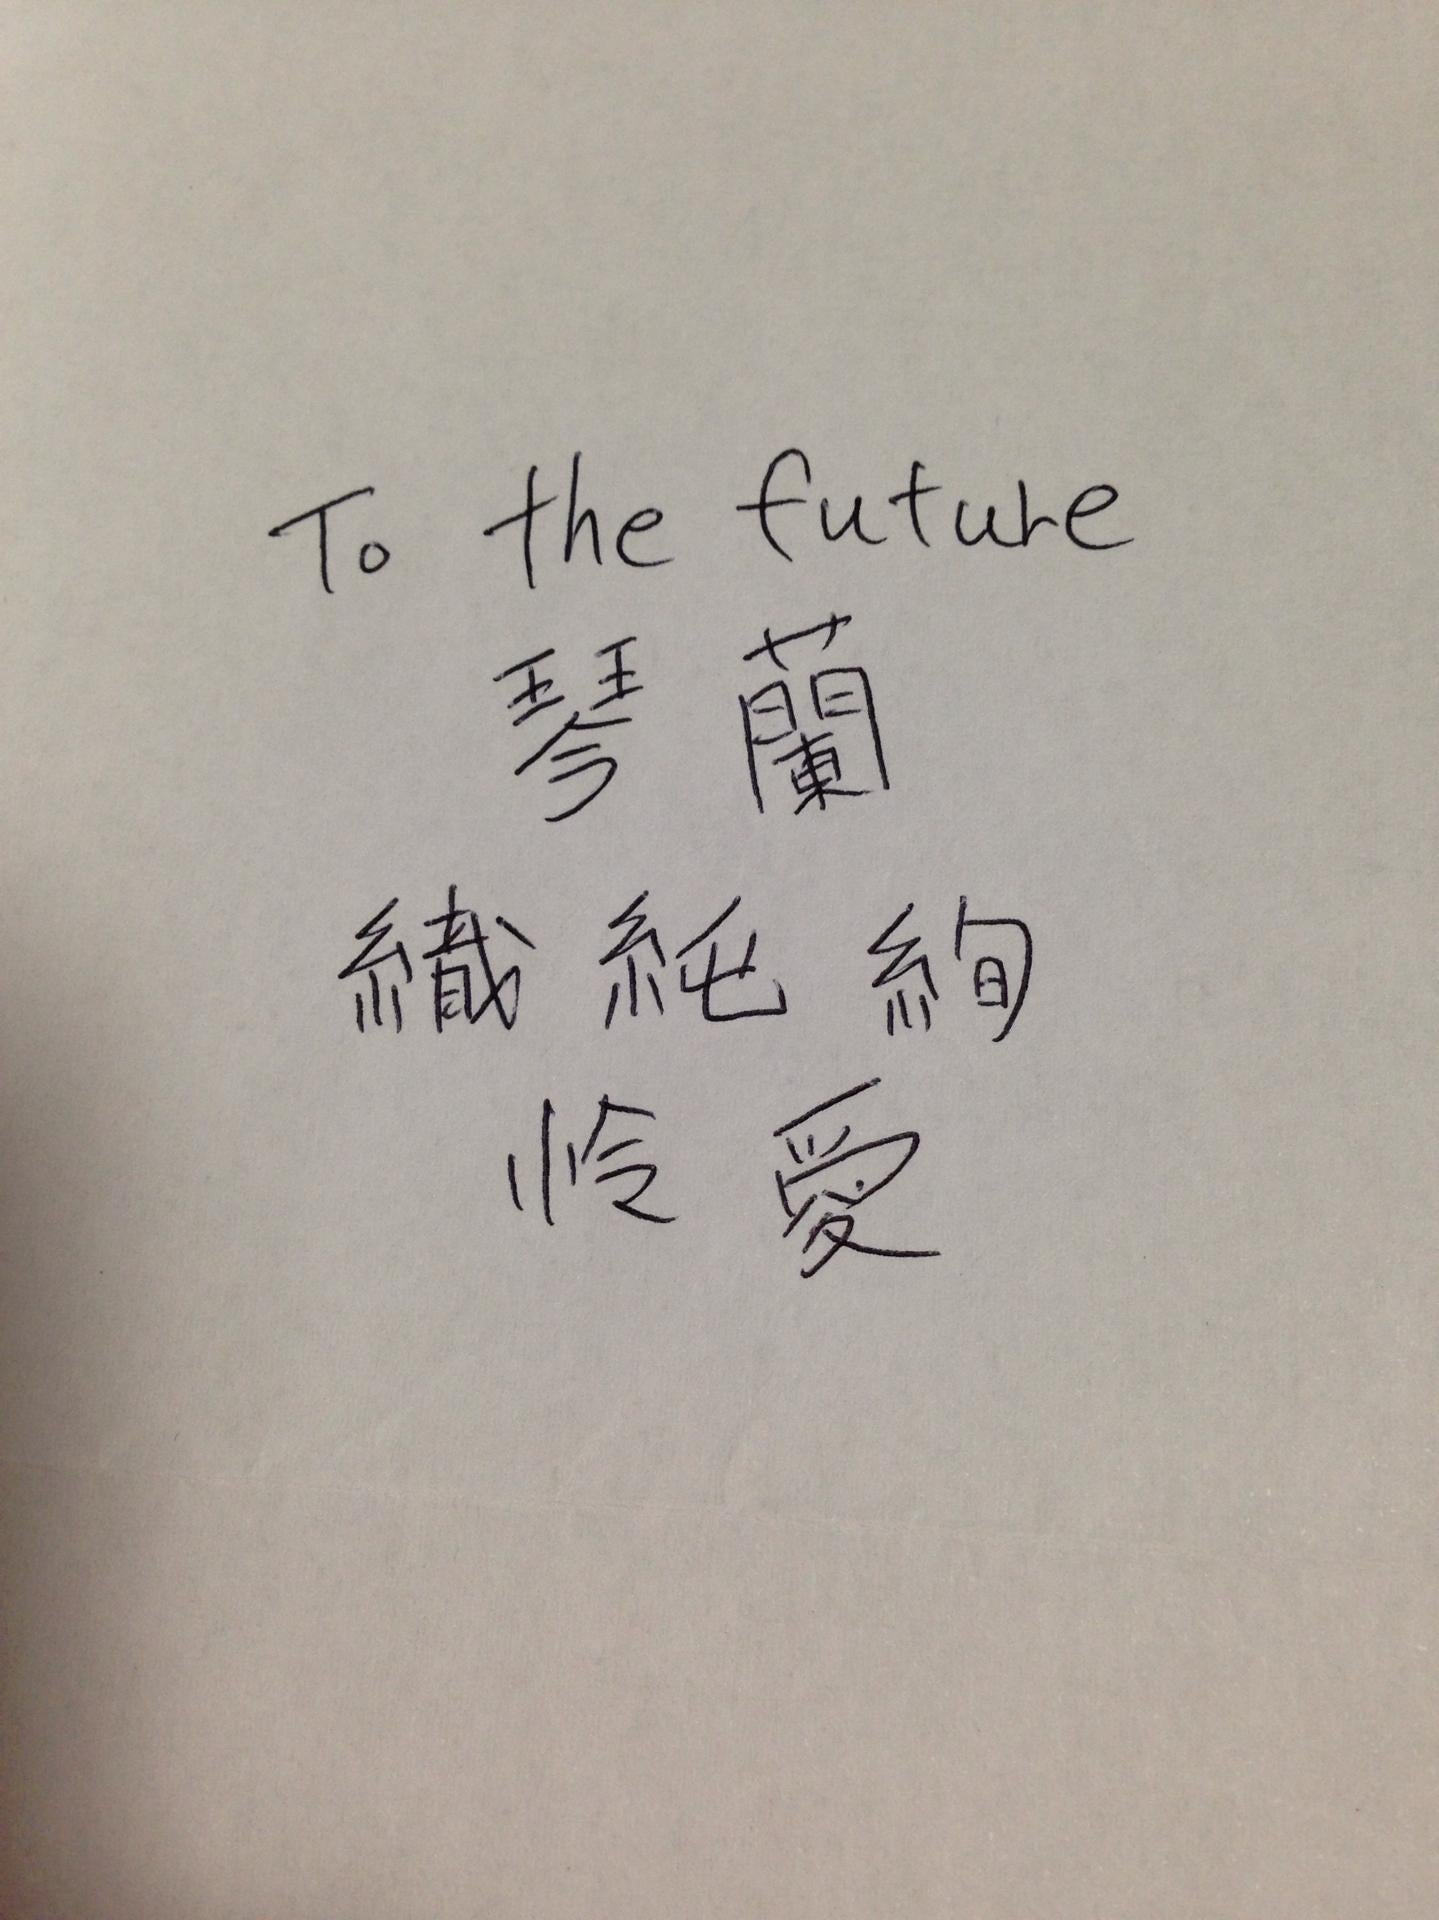 To the future
琴 蘭
織 純 絢
怜 愛